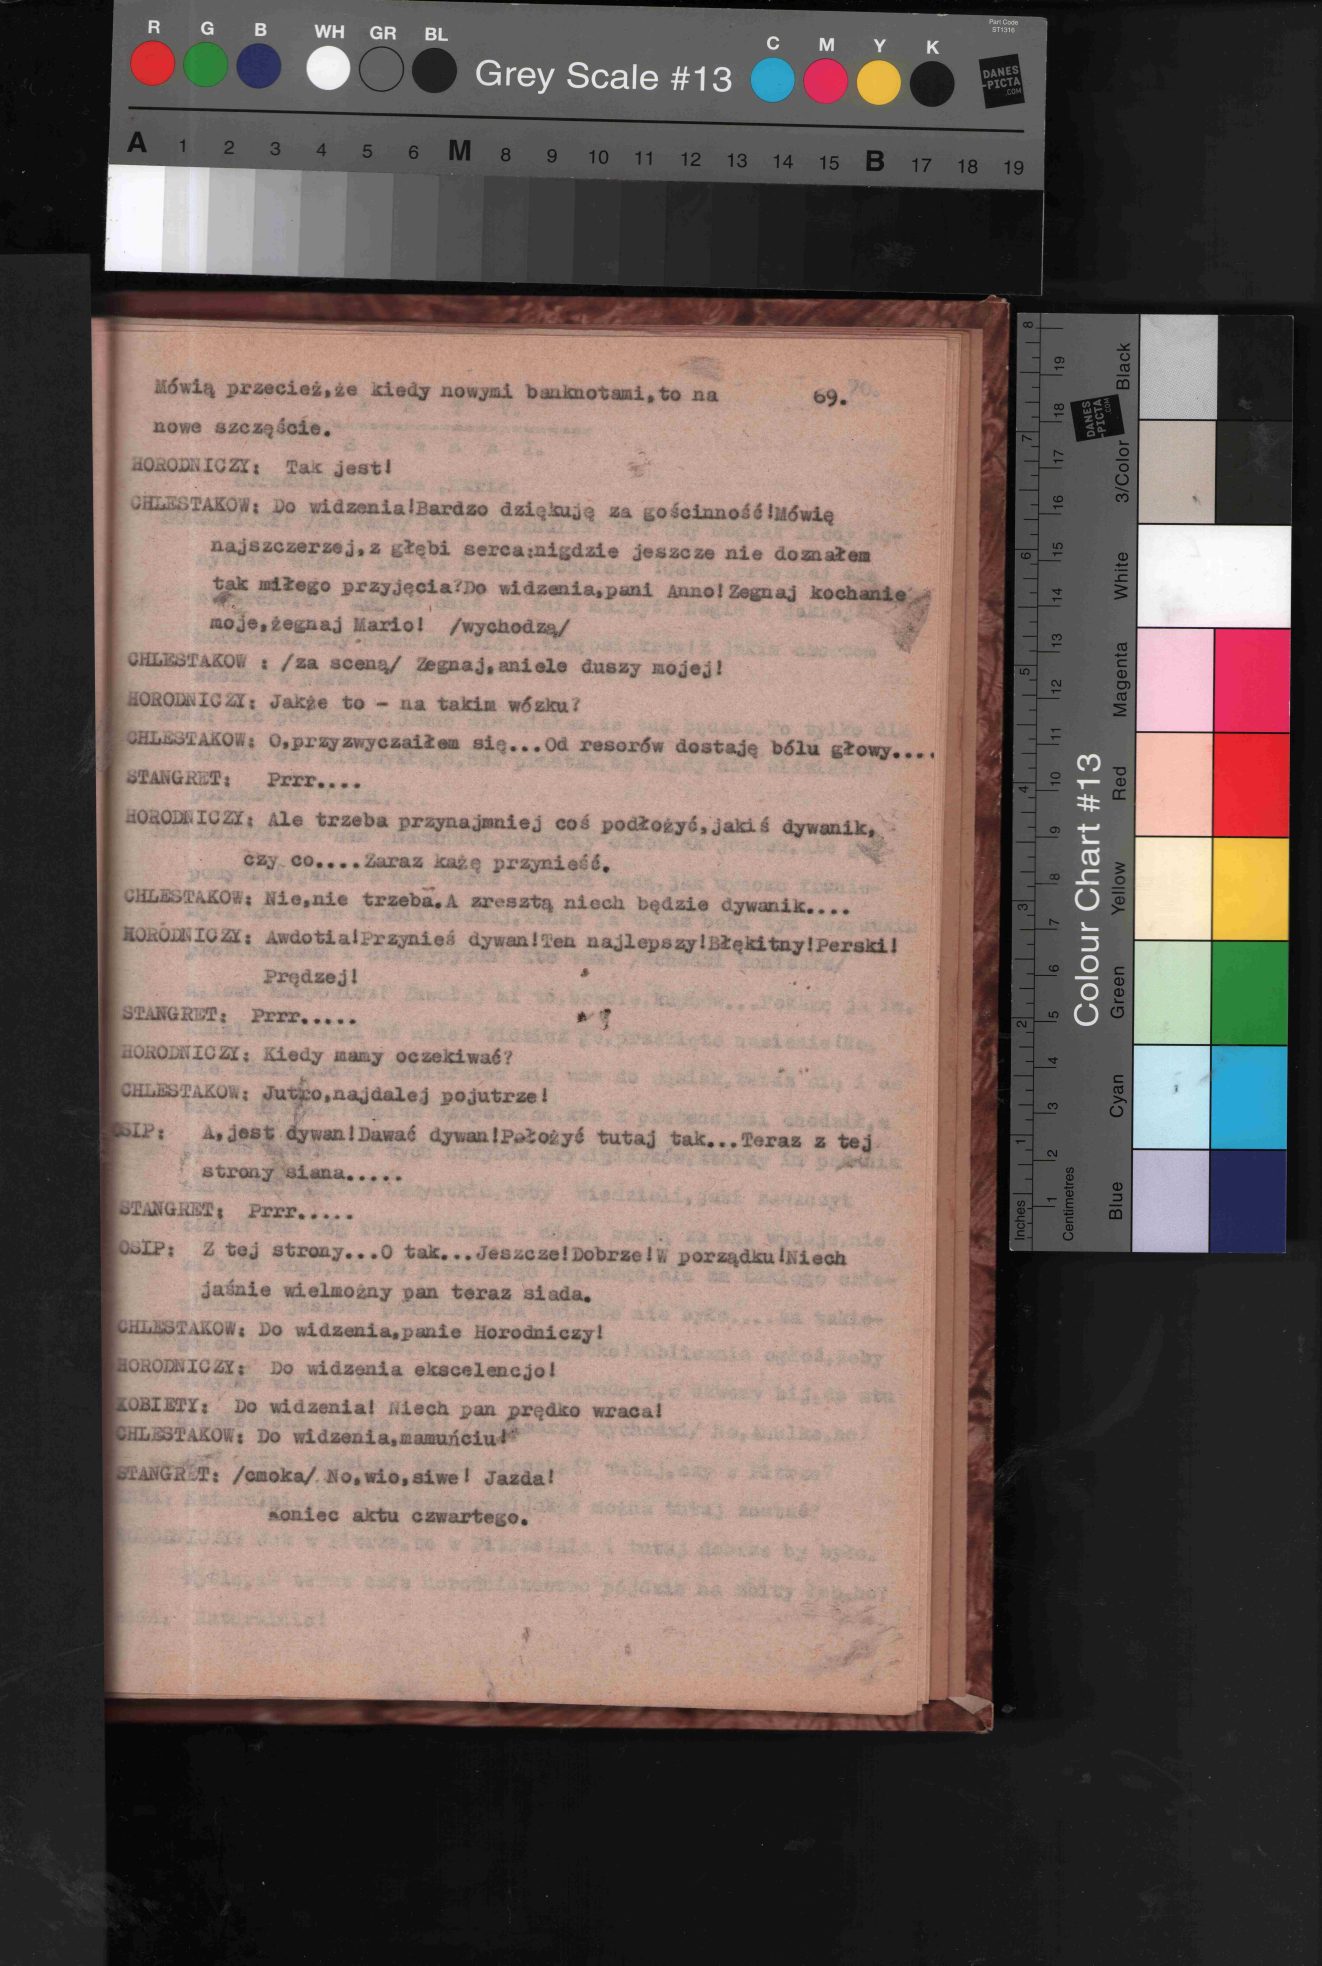 R G B WH GR BL Grey Scale #13 C M Y K
Part Code
ST1316
DANES
-PICTA
.COM
A 1 2 3 4 5 6 M 8 9 10 11 12 13 14 15 B 17 18 19
Mówią przecież,że kiedy nowymi banknotami,to na 69.
nowe szczęście.
HORODNICZY: Tak jest!
CHLESTAKOW: Do widzenia!Bardzo dziękuję za gościnność!Mówię
najszczerzej,z głębi serca:nigdzie jeszcze nie doznałem
tak miłego przyjęcia?Do widzenia,pani Anno!Zegnaj kochanie
moje,żegnaj Mario! /wychodzą/
CHLESTAKOW : /za sceną/ Zegnaj,aniele duszy mojej!
HORODNICZY: Jakże to - na takim wózku?
CHLESTAKOW: O,przyzwyczaiłem się...Od resorów dostaję bólu głowy....
STANGRET: Prrr....
HORODNICZY: Ale trzeba przynajmniej coś podłożyć,jakiś dywanik,
czy co....Zaraz każę przynieść.
CHLESTAKOW: Nie,nie trzeba.A zresztą niech będzie dywanik....
HORODNICZY: Awdotia!Przynieś dywan!Ten najlepszy!Błękitny!Perski!
Prędzej!
STANGRET: Prrr.....
HORODNICZY: Kiedy mamy oczekiwać?
CHLESTAKOW: Jutro,najdalej pojutrze!
OSIP: A,jest dywan!Dawać dywan!Położyć tutaj tak...Teraz z tej
strony siana.....
STANGRET: Prrr.....
OSIP: Z tej strony...O tak...Jeszcze!Dobrze!W porządku!Niech
jaśnie wielmożny pan teraz siada.
CHLESTAKOW: Do widzenia,panie Horodniczy!
HORODNICZY: Do widzenia ekscelencjo!
KOBIETY: Do widzenia! Niech pan prędko wraca!
CHLESTAKOW: Do widzenia,mamuńciu!
STANGRET: /cmoka/ No,wio,siwe! Jazda!
Koniec aktu czwartego.
Colour Chart #13
Blue Cyan Green Yellow Red Magenta White 3/Color Black
Inches 1 2 3 4 5 6 7 8
Centimetres 1 2 3 4 5 6 7 8 9 10 11 12 13 14 15 16 17 18 19
DANES
-PICTA
.COM